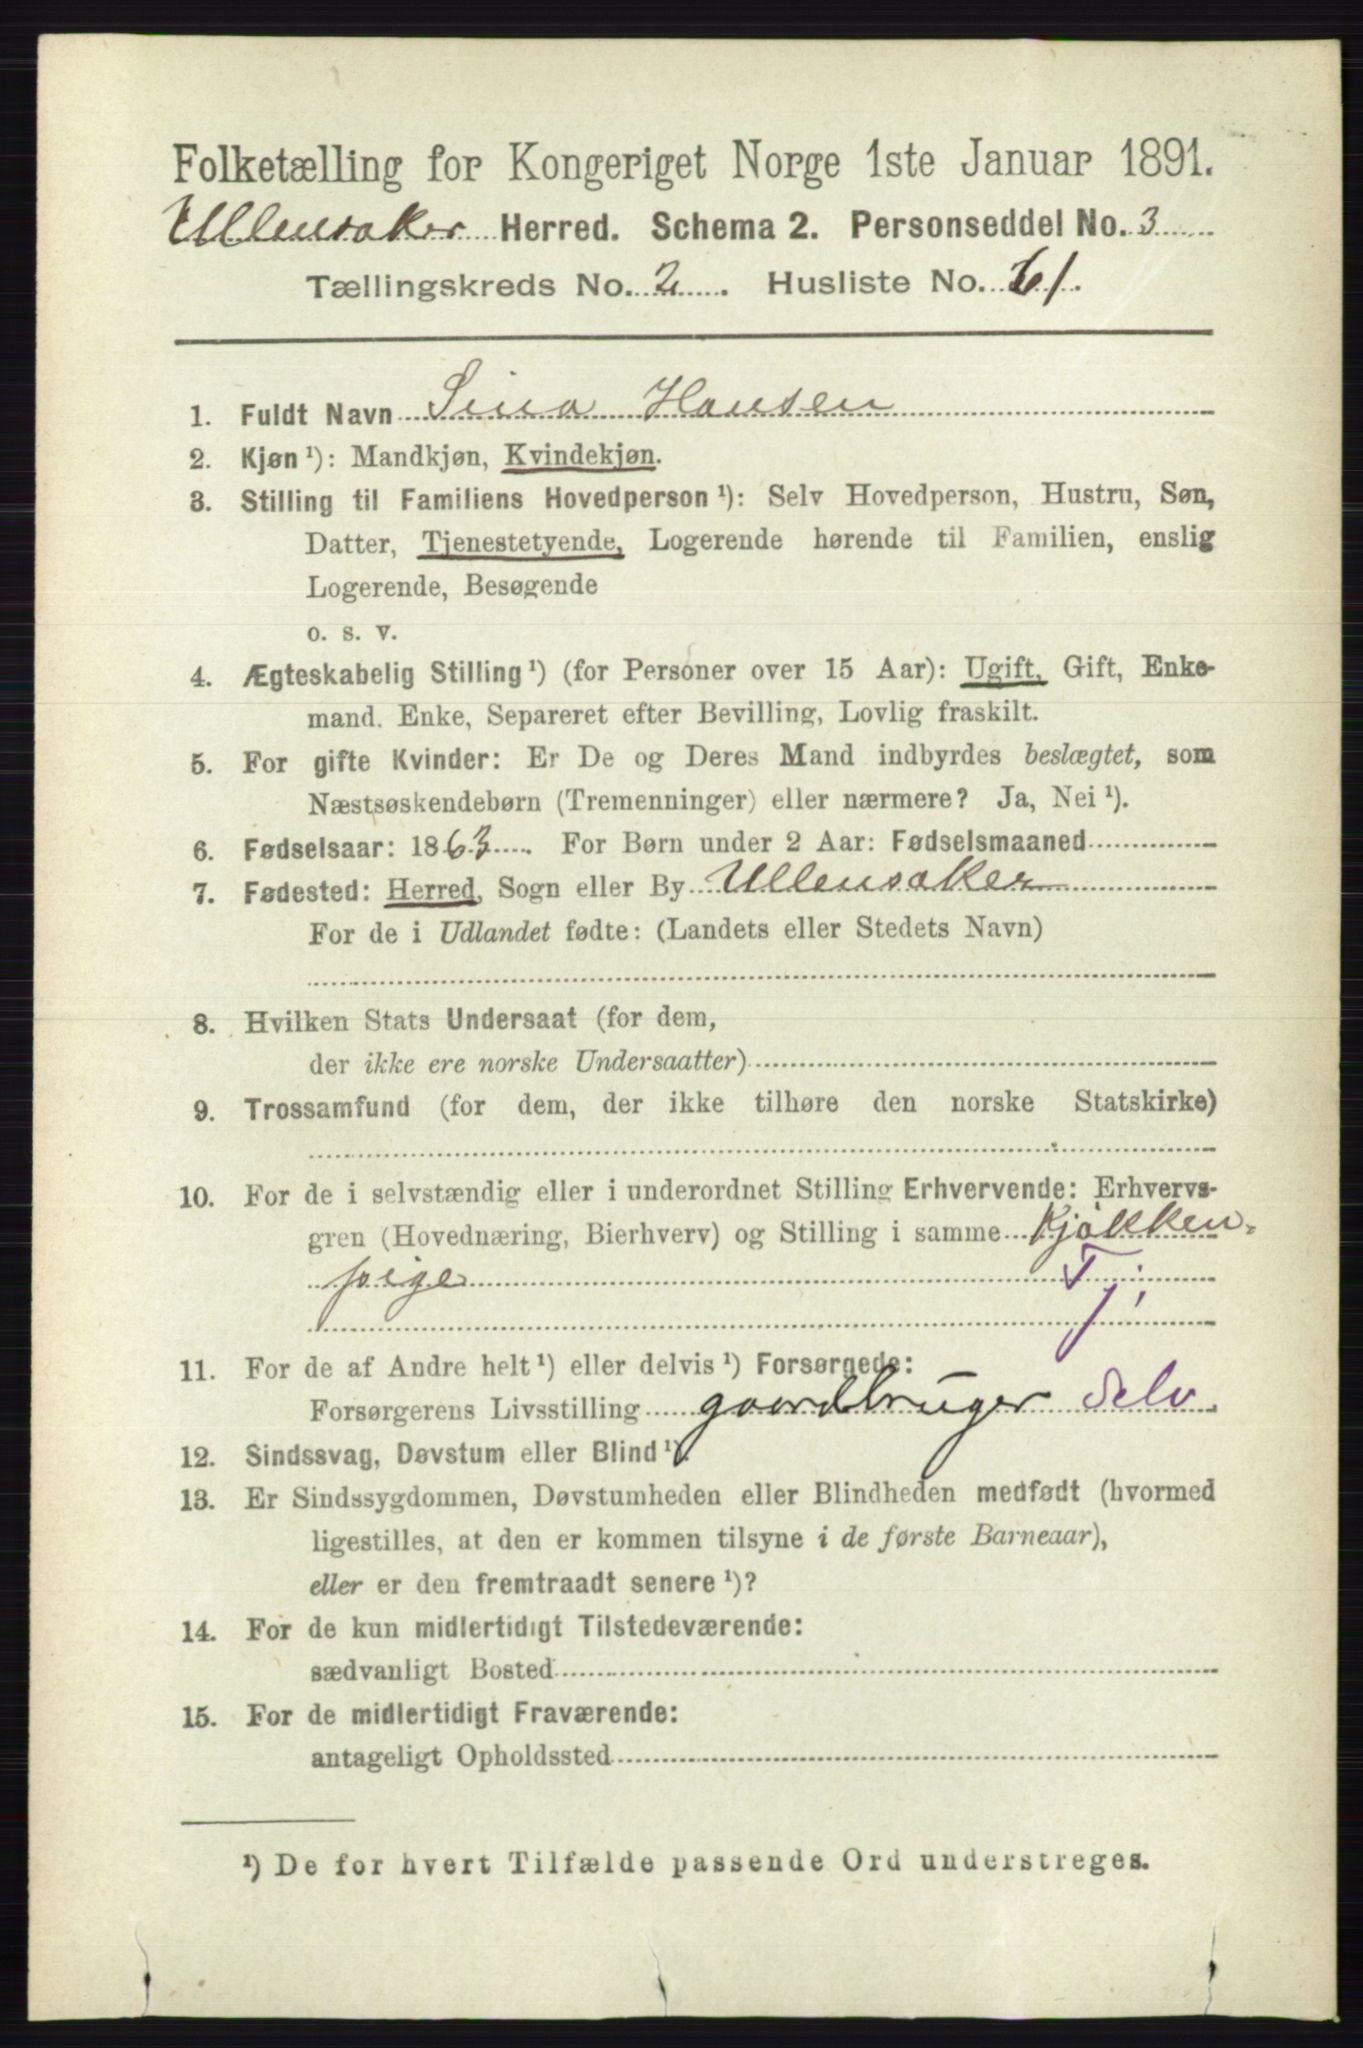 Folketælling for Kongeriget Norge 1ste Januar 1891.
Ullensaker Herred. Schema 2. Personseddel No. 3
Tællingskreds No. 2. Husliste No. 61.
1. Fuldt Navn Sina Hansen
2. Kjøn ¹): Mandkjøn, Kvindekjøn.
3. Stilling til Familiens Hovedperson ¹): Selv Hovedperson, Hustru, Søn,
Datter, Tjenestetyende, Logerende hørende til Familien, enslig
Logerende, Besøgende
o. s. v.
4. Ægteskabelig Stilling ¹) (for Personer over 15 Aar): Ugift, Gift, Enke-
mand. Enke, Separeret efter Bevilling, Lovlig fraskilt.
5. For gifte Kvinder: Er De og Deres Mand indbyrdes beslægtet, som
Næstsøskendebørn (Tremenninger) eller nærmere? Ja, Nei ¹).
6. Fødselsaar: 1863. For Børn under 2 Aar: Fødselsmaaned
7. Fødested: Herred, Sogn eller By Ullensaker
For de i Udlandet fødte: (Landets eller Stedets Navn)
8. Hvilken Stats Undersaat (for dem,
der ikke ere norske Undersaatter)
9. Trossamfund (for dem, der ikke tilhøre den norske Statskirke)
10. For de i selvstændig eller i underordnet Stilling Erhvervende: Erhvervs-
gren (Hovednæring, Bierhverv) og Stilling i samme Kjøkken-
pige Tj.
11. For de af Andre helt ¹) eller delvis ¹) Forsørgede:
Forsørgerens Livsstilling gaardbruger Selv.
12. Sindssvag, Døvstum eller Blind ¹).
13. Er Sindssygdommen, Døvstumheden eller Blindheden medfødt (hvormed
ligestilles, at den er kommen tilsyne i de første Barneaar),
eller er den fremtraadt senere ¹)?
14. For de kun midlertidigt Tilstedeværende:
sædvanligt Bosted
15. For de midlertidigt Fraværende:
antageligt Opholdssted
¹) De for hvert Tilfælde passende Ord understreges.